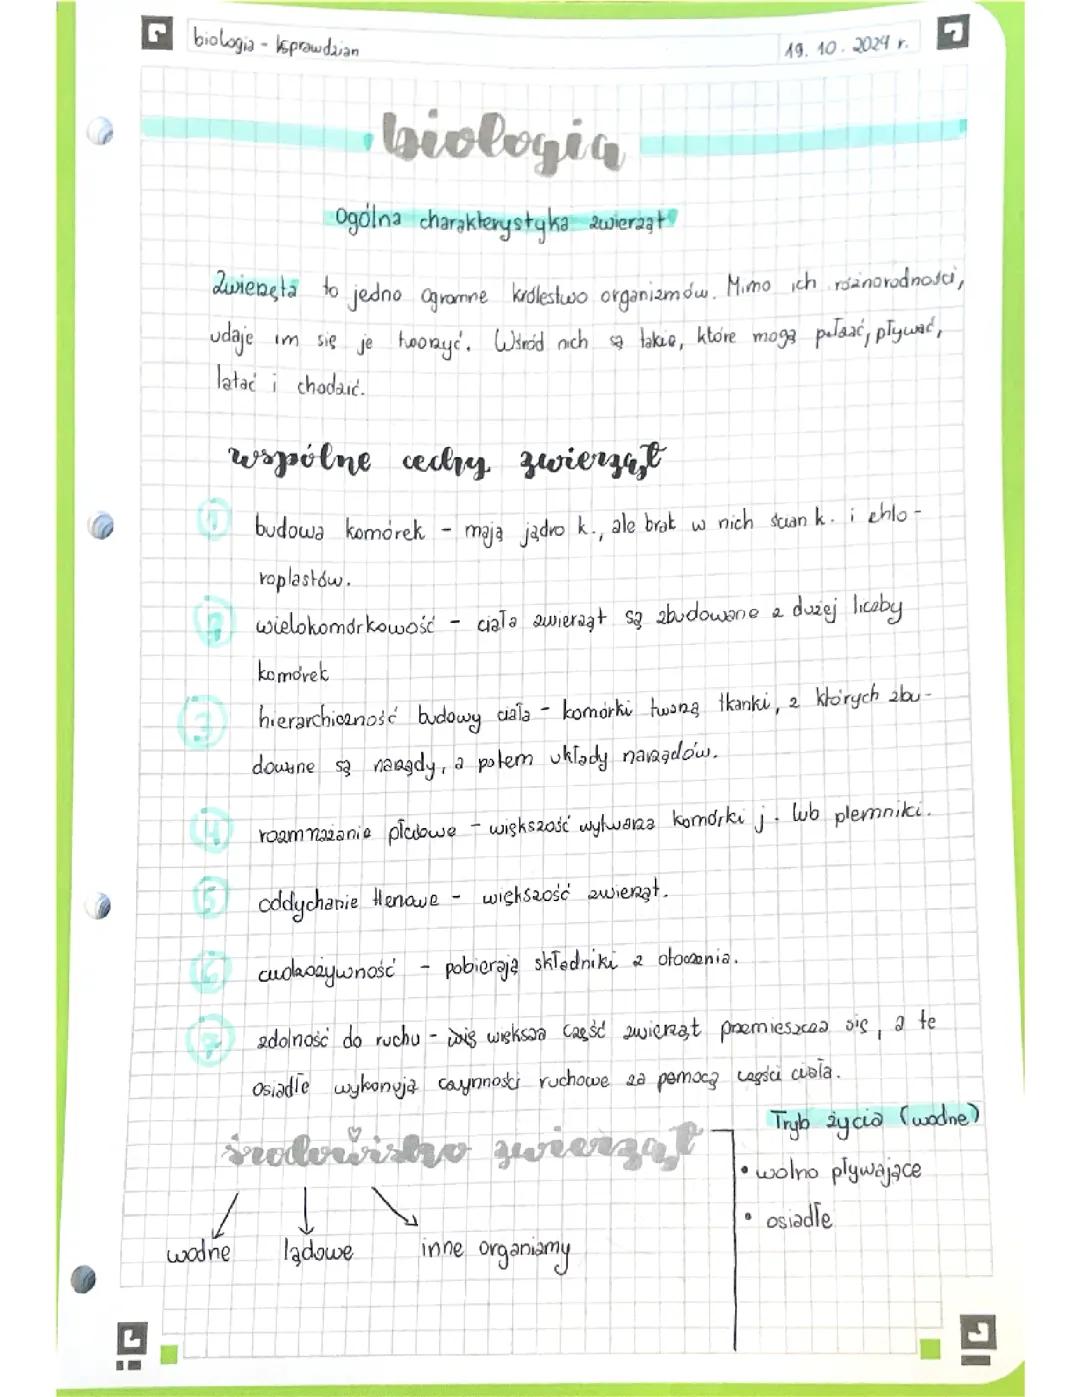 biologia - sprawdzian
19. 10. 2024 r.
biologia
Ogólna charakterystyka zwierząt
Zwierzęta to jedno ogromne królestwo organizmów. Mimo ich różnorodności,
udaje im się je tworzyć. Wśród nich są takie, które mogą pełzać, pływać,
latać i chodzić.
wspólne cechy zwierząt
1 budowa komórek - mają jądro k., ale brak w nich ścian k. i chlo-
roplastów.
2 wielokomórkowość - ciała zwierząt są zbudowane z dużej liczby
komórek
3 hierarchiczność budowy ciała - komórki tworzą tkanki, z których zbu-
dowane są narządy, a potem układy narządów.
4 rozmnażanie płciowe - większość wytwarza komórki j. lub plemniki.
5 oddychanie tlenowe - większość zwierząt.
6 cudzożywność - pobierają składniki z otoczenia.
7 zdolność do ruchu - większa część zwierząt przemieszcza się, a te
osiadłe wykonują czynności ruchowe za pomocą części ciała.
środowisko zwierząt
Tryb życia (wodne)
• wolno pływające
• osiadłe
wodne lądowe inne organizmy